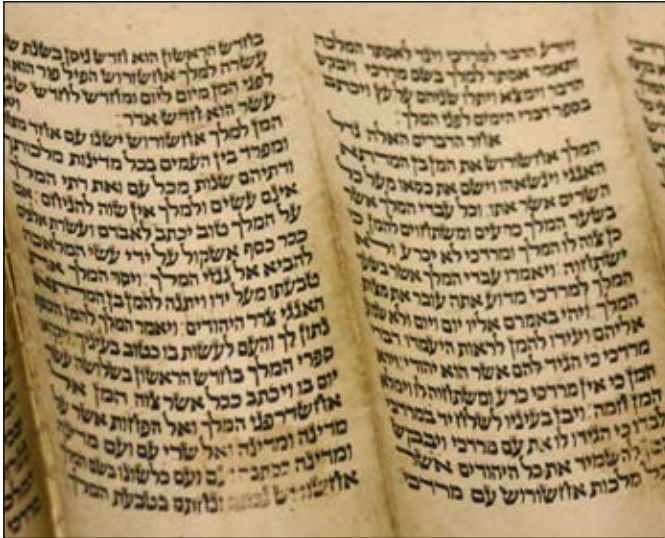 ויודע הדבר למרדכי ויגד לאסתר המלכה
ותאמר אסתר למלך בשם מרדכי ויבקש
הדבר וימצא ויתלו שניהם על עץ ויכתב
בספר דברי הימים לפני המלך
אחר הדברים האלה גדל
המלך אחשורוש את המן בן המדתא
האגגי וינשאהו וישם את כסאו מעל כל
השרים אשר אתו וכל עבדי המלך אשר
בשער המלך כרעים ומשתחוים להמן כי
כן צוה לו המלך ומרדכי לא יכרע ולא
ישתחוה ויאמרו עבדי המלך אשר בשער
המלך למרדכי מדוע אתה עובר את מצות
המלך ויהי באמרם אליו יום ויום ולא שמע
אליהם ויגידו להמן לראות היעמדו דברי
מרדכי כי הגיד להם אשר הוא יהודי וירא
המן כי אין מרדכי כרע ומשתחוה לו וימלא
המן חמה ויבז בעיניו לשלח יד במרדכי
לבדו כי הגידו לו את עם מרדכי ויבקש
להשמיד את כל היהודים אשר
מלכות אחשורוש עם מרדכי
בחדש הראשון הוא חדש ניסן בשנת
עשרה למלך אחשורוש הפיל פור הוא
לפני המן מיום ליום ומחדש לחדש
עשר הוא חדש אדר
המן למלך אחשורוש ישנו עם אחד
ומפרד בין העמים בכל מדינות מלכותך
ודתיהם שנות מכל עם ואת דתי המלך
אינם עשים ולמלך אין שוה להניחם אם
על המלך טוב יכתב לאבדם ועשרת אלפים
ככר כסף אשקול על ידי עשי המלאכה
להביא אל גנזי המלך ויסר המלך את
טבעתו מעל ידו ויתנה להמן בן המדתא
האגגי צרר היהודים ויאמר המלך להמן הכסף
נתון לך והעם לעשות בו כטוב בעיניך ויקראו
ספרי המלך בחדש הראשון בשלושה עשר
יום בו ויכתב ככל אשר צוה המן אל
אחשדרפני המלך ואל הפחות אשר על
מדינה ומדינה ואל שרי עם ועם מדינה
ומדינה ככתבה ועם כלשונו בשם המלך
אחשורש נכתב ונחתם בטבעת המלך